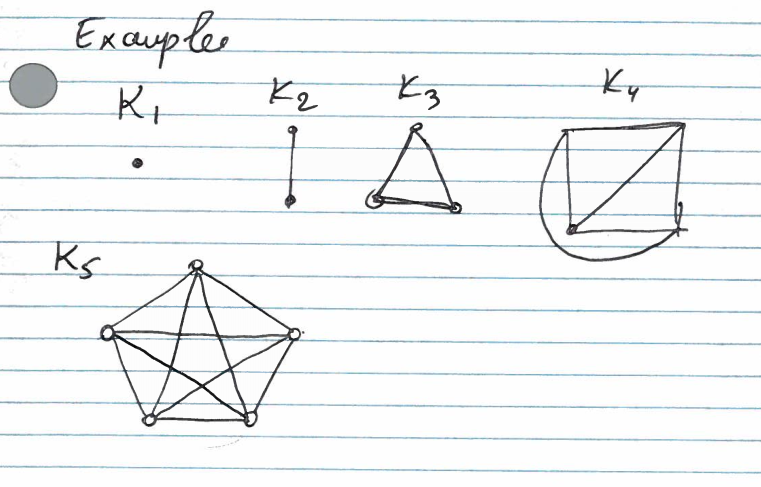 Examples
K₁ K₂ K₃ K₄
K₅